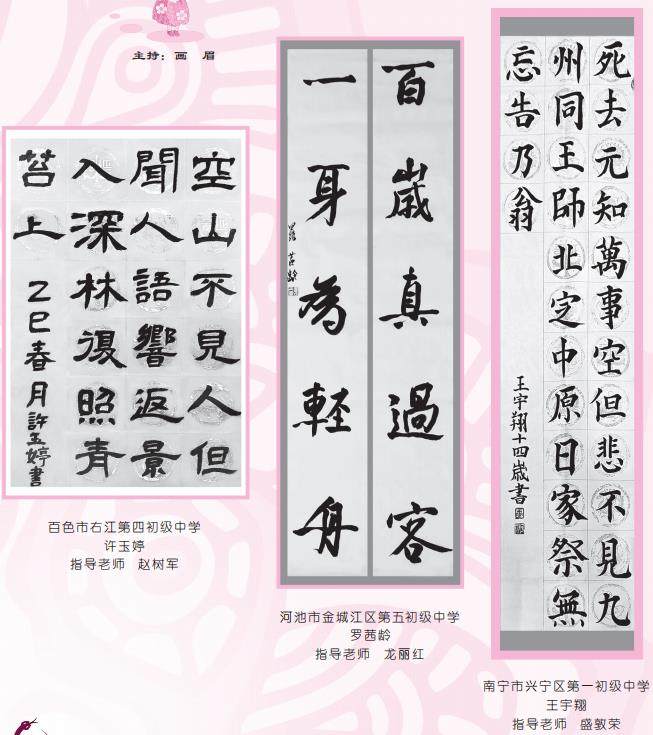 主持：画 眉
空山不見人但
聞人語響返景
入深林復照青
苔上
乙巳春月許玉婷書
百色市右江第四初级中学
许玉婷
指导老师 赵树军
百歲真過客
一身為輕舟
羅茜齡
河池市金城江区第五初级中学
罗茜龄
指导老师 龙丽红
死去元知萬事空但悲不見九
州同王師北定中原日家祭無
忘告乃翁
王宇翔十四歲書
南宁市兴宁区第一初级中学
王宇翔
指导老师 盛敦荣